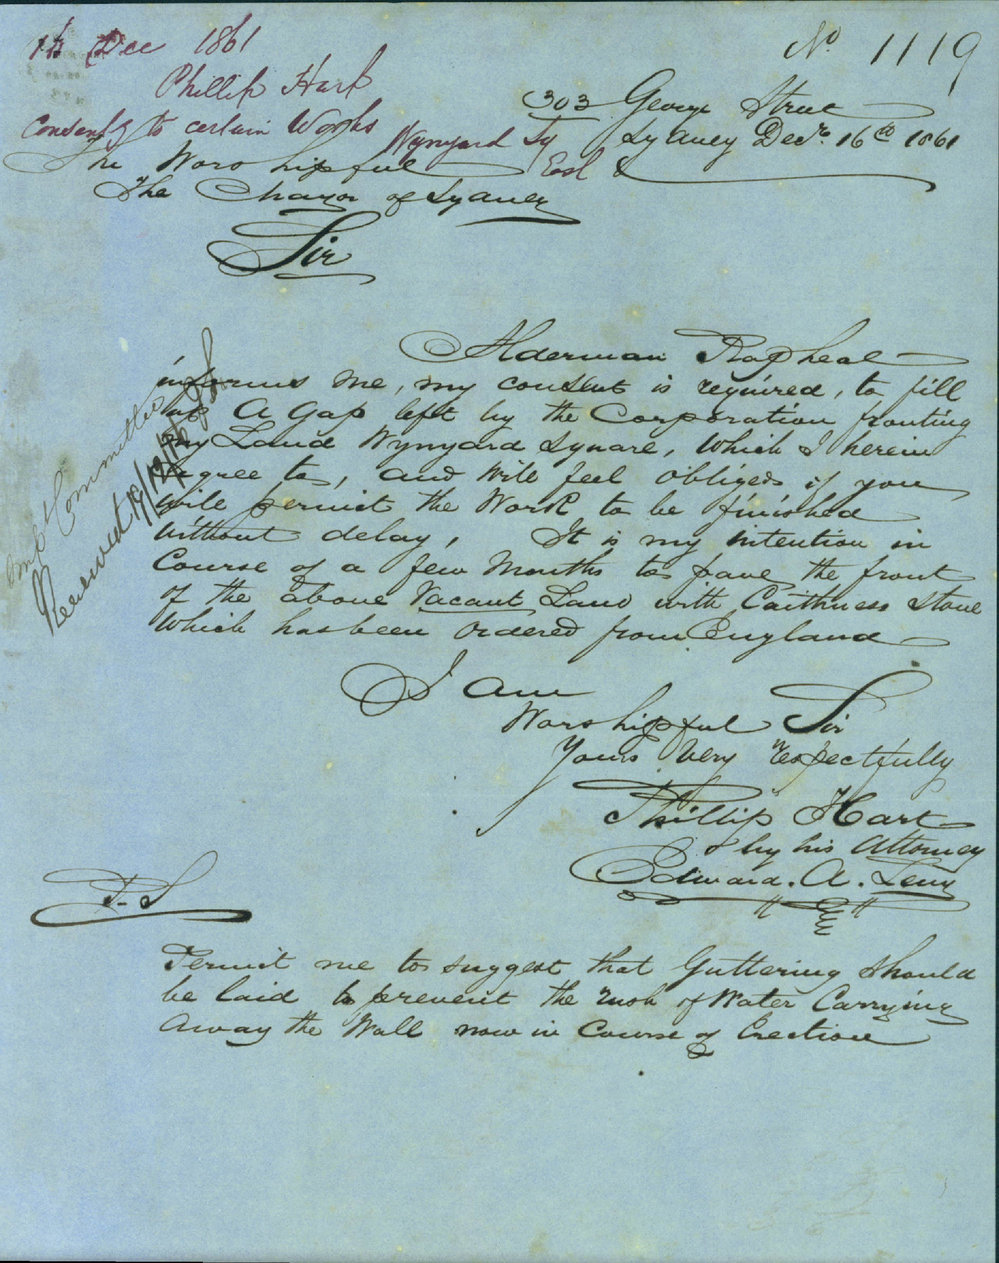 No 1119
16 Dec 1861
Phillip Hart
Consents to certain Works Wynyard Sq
East
303 George Street
Sydney Decr. 16th 1861
The Worshipful
The Mayor of Sydney
Sir
Alderman Rapheal
informs me, my consent is required, to fill
up A Gap left by the Corporation fronting
my Land Wynyard Square, Which I herein
Agree to, and will feel obliged if you
will permit the Work to be finished
Without delay, It is my intention in
Course of a few Months to pave the front
of the above Vacant Land with Caithness Stone
Which has been Ordered from England
I am
Worshipful Sir
Yours Very respectfully
Phillip Hart
by his Attorney
Edward. A. Levy
P.S
Permit me to suggest that Guttering should
be laid to prevent the rush of Water Carrying
Away the Wall now in Course of Erection
Committee
Received 19/12/61